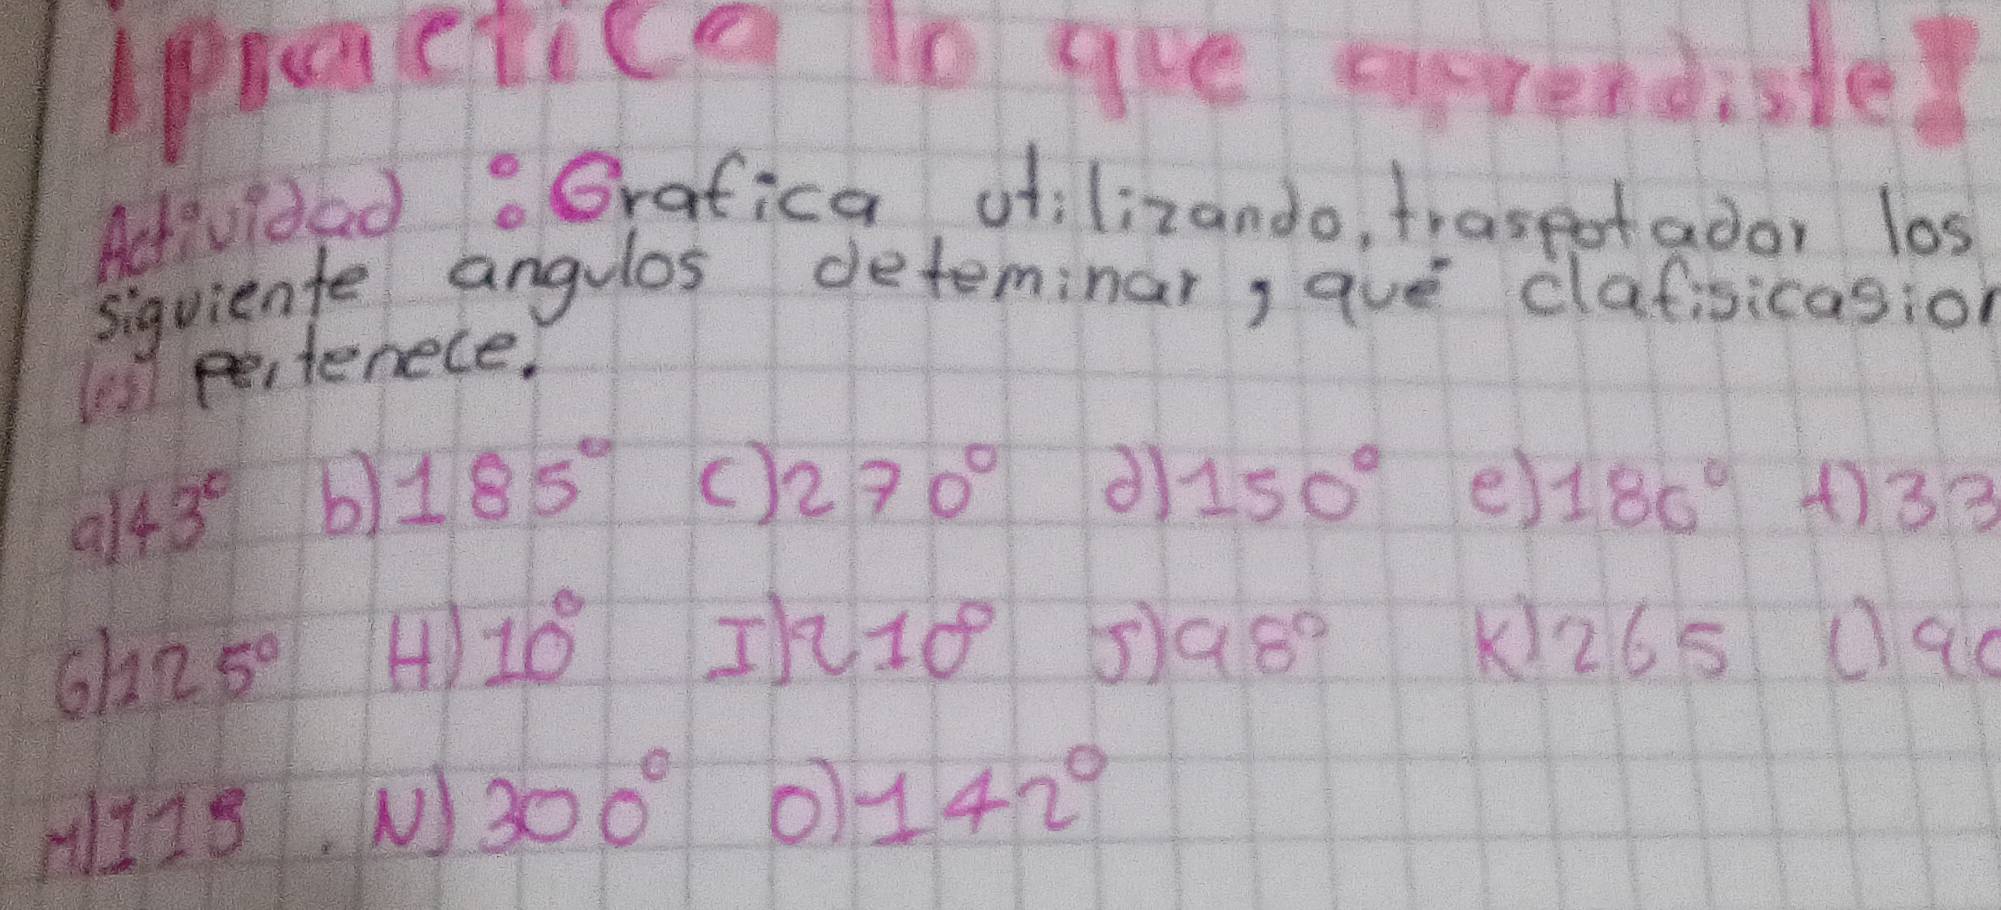 ¡practica lo que aprendiste!
Actividad : Grafica utilizando, traspotador los
siguiente angulos deteminar, qué clafisicasion
les pertenece.
a) 43° b) 185° c) 270° d) 150° e) 180° f) 33
G) 125° H) 10° I) 210° J) 98° K) 265 L) 90
M) 115 . N) 300° O) 142°